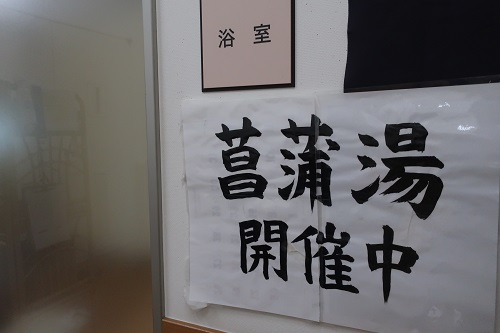 浴室
菖蒲湯
開催中